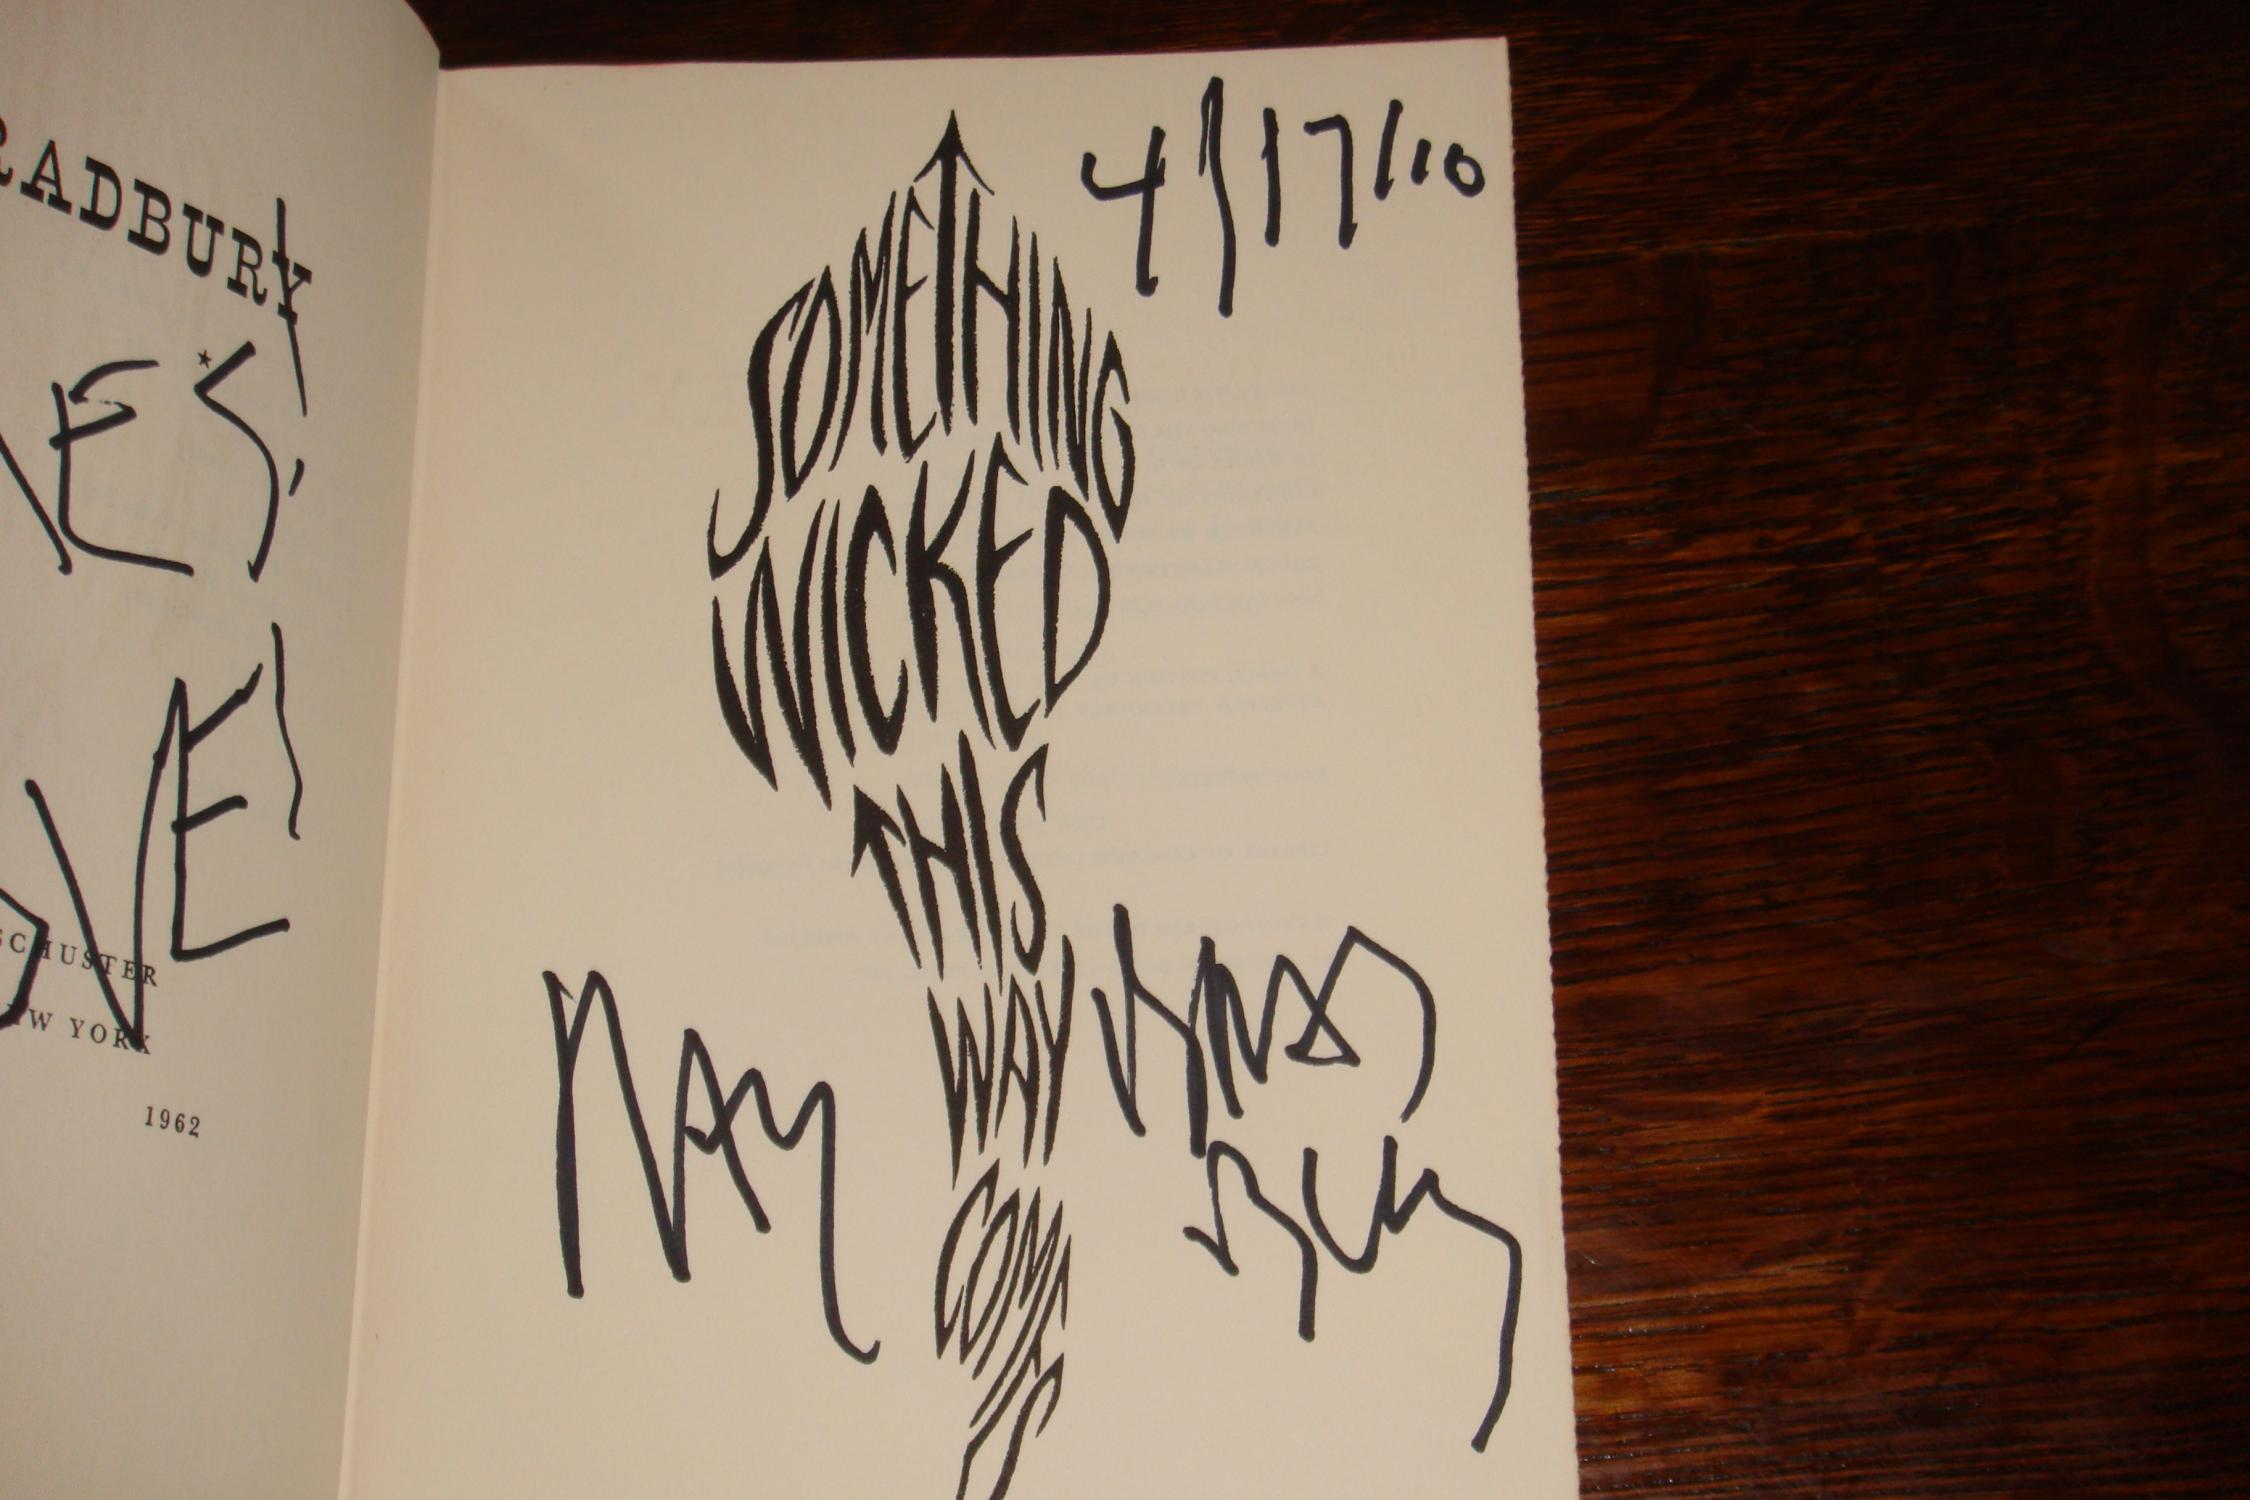 RADBURY
ES,
VE!
SCHUSTER
NEW YORK
1962
4/17/10
SOMETHING
WICKED
THIS
WAY
COMES
RAY
BRAD
BURY